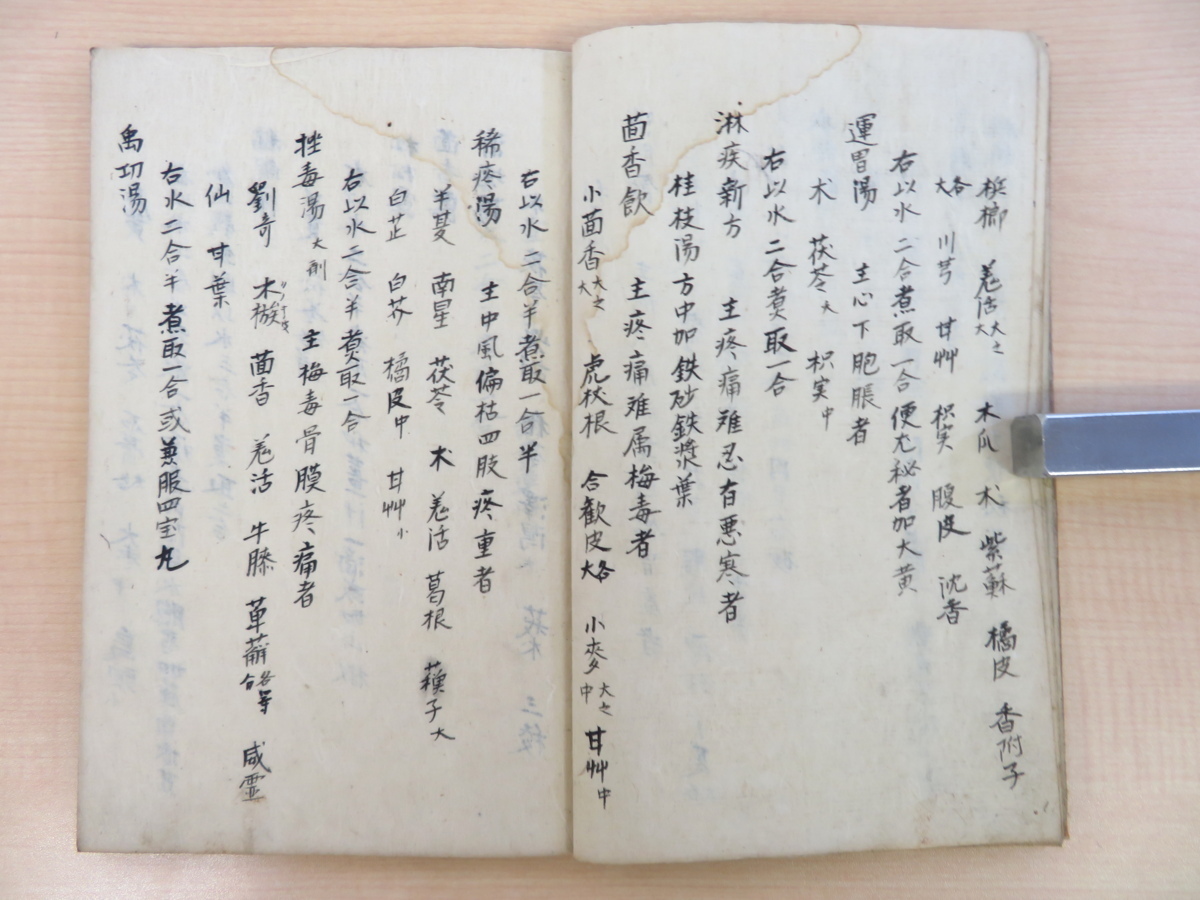 梹榔 羌活大之大 木瓜 术 紫蘇 橘皮 香附子
各大 川芎 甘艸 枳実 腹皮 沈香
右以水二合煮取一合便尤秘者加大黄
運胃湯 主心下胞脹者
术 茯苓大 枳実中
右以水二合煮取一合
淋疾新方 主疼痛難忍有悪寒者
桂枝湯方中加鉄砂鉄漿葉
茴香飲 主疼痛难属梅毒者
小茴香大之大 虎杖根 合歓皮各大 小麥大之中 甘艸中
右以水二合半煮取一合半
稀疼湯 主中風偏枯四肢疼重者
羊蔓 南星 茯苓 术 羌活 葛根 蘓子大
白芷 白芥 橘皮中 甘艸小
右以水二合半煮取一合
挫毒湯大剤 主梅毒骨膜疼痛者
劉寄 木槿 茴香 羌活 牛膝 萆薢各等分 威霊
仙 甘葉
右水二合半煮取一合或兼服四宝丸
禹功湯